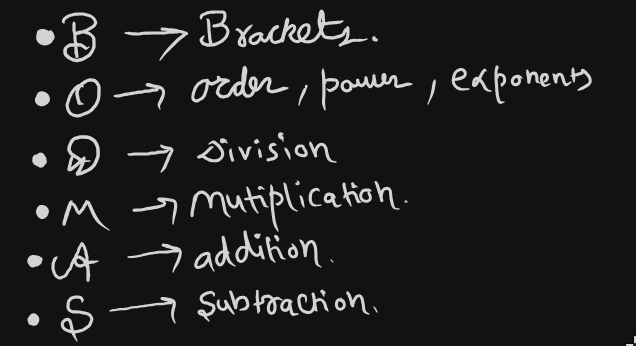 • B → Brackets.
• O → order, power, exponents
• D → Division
• M → Mutiplication.
• A → addition.
• S → Subtraction.